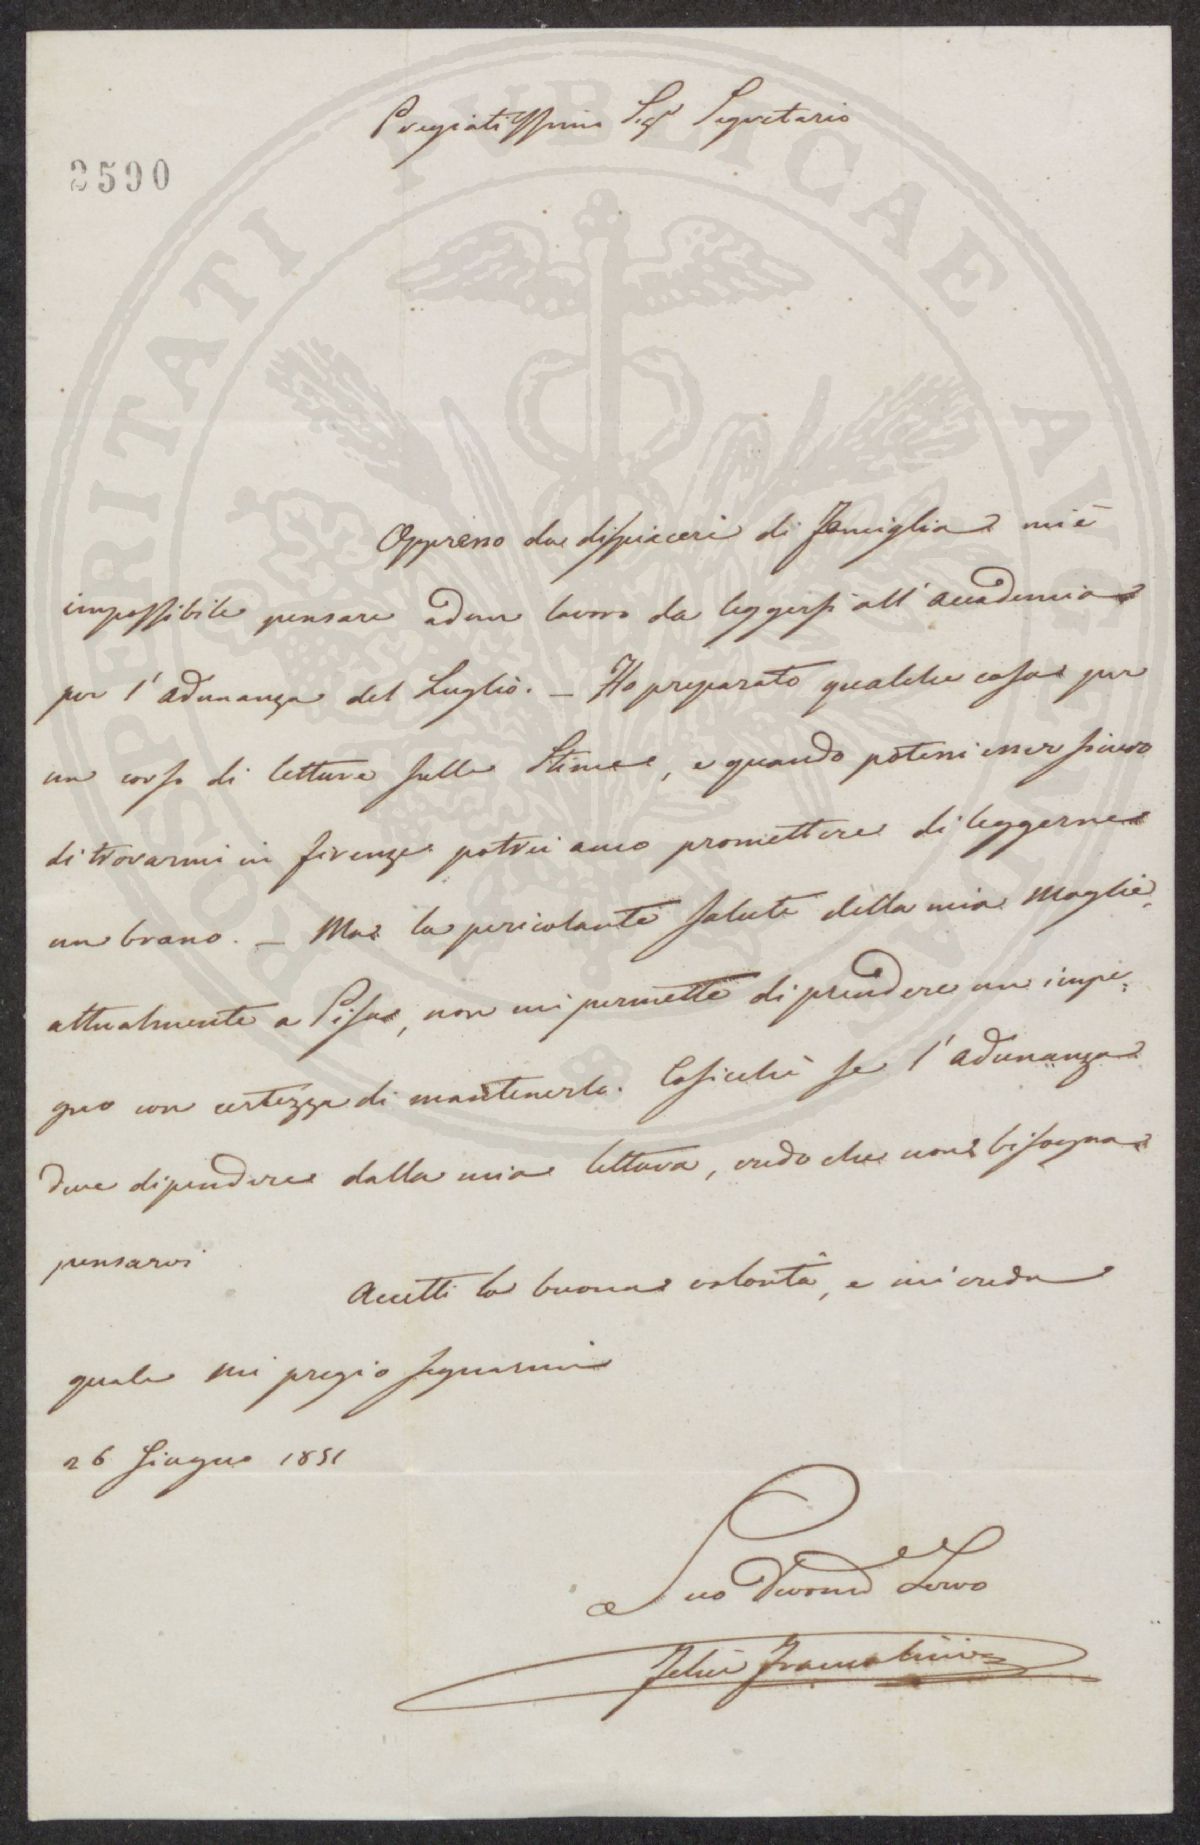 Pregiatissimo Sigr Segretario
2590
Oppresso da dispiaceri di famiglia mi è
impossibile pensare ad un lavoro da leggersi all'Accademia
per l'adunanza del Luglio. — Ho preparato qualche cosa per
un corso di letture sulle Stime, e quando potessi esser sicuro
di trovarmi in firenze potrei anco promettere di leggerne
un brano. — Ma la pericolante salute della mia Moglie
attualmente a Pisa, non mi permette di prendere un impe:
gno con certezza di mantenerlo. Cosicchè se l'adunanza
deve dipendere dalla mia lettura, credo che non bisogna
pensarvi
Accetti la buona volontà, e mi creda
quale mi pregio segnarmi
26 Giugno 1851
Suo Devomo Servo
Felice Francolini
PROSPERITATI PVBLICAE AVGENDAE